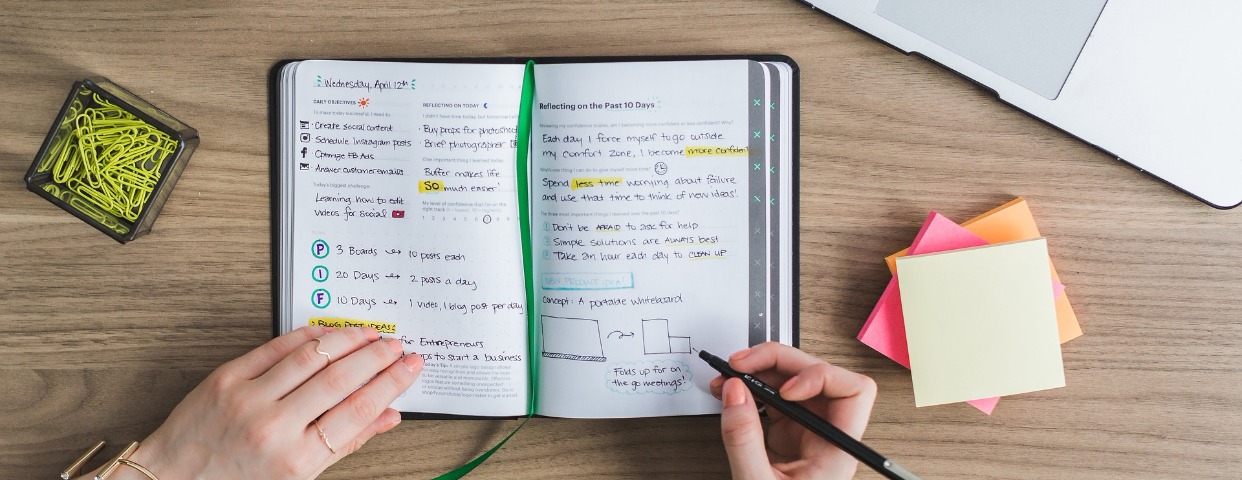 Wednesday, April 12th
DAILY OBJECTIVES
To make today successful, I need to
Create social content
Schedule Instagram posts
Optimize FB Ads
Answer customer emails
Today's biggest challenge
Learning how to edit
videos for social
REFLECTING ON TODAY
Buy props for photoshoot
Brief photographer
One important thing I learned today
Buffer makes life
SO much easier!
My level of confidence that I'm on the
P 3 Boards 10 posts each
I 20 Days 2 posts a day
F 10 Days 1 video, 1 blog post per day
BLOG POST IDEAS:
for Entrepreneurs
to start a business
Reflecting on the Past 10 Days
Each day I force myself to go outside
my comfort zone, I become more confident
Spend less time worrying about failure
and use that time to think of new ideas!
The three most important things I learned over the past 10 days?
1 Don't be AFRAID to ask for help
2 Simple solutions are ALWAYS best
3 Take an hour each day to CLEAN UP
NEW PRODUCT IDEA!
Concept: A portable whiteboard
Folds up for on
the go meetings!